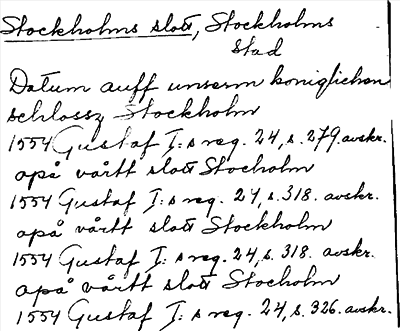 Stockholms slott, Stockholms
Stad
Datum auff unserm koniglichen
schlossz Stockholm
1554 Gustaf I:s reg. 24, s. 279. avskr.
apå vårtt slott Stocholm
1554 Gustaf I:s reg. 24, s. 318. avskr.
apå vårtt slott Stockholm
1554 Gustaf I:s reg. 24, s. 318. avskr.
apå vårtt slott Stocholm
1554 Gustaf I:s reg. 24, s. 326. avskr.